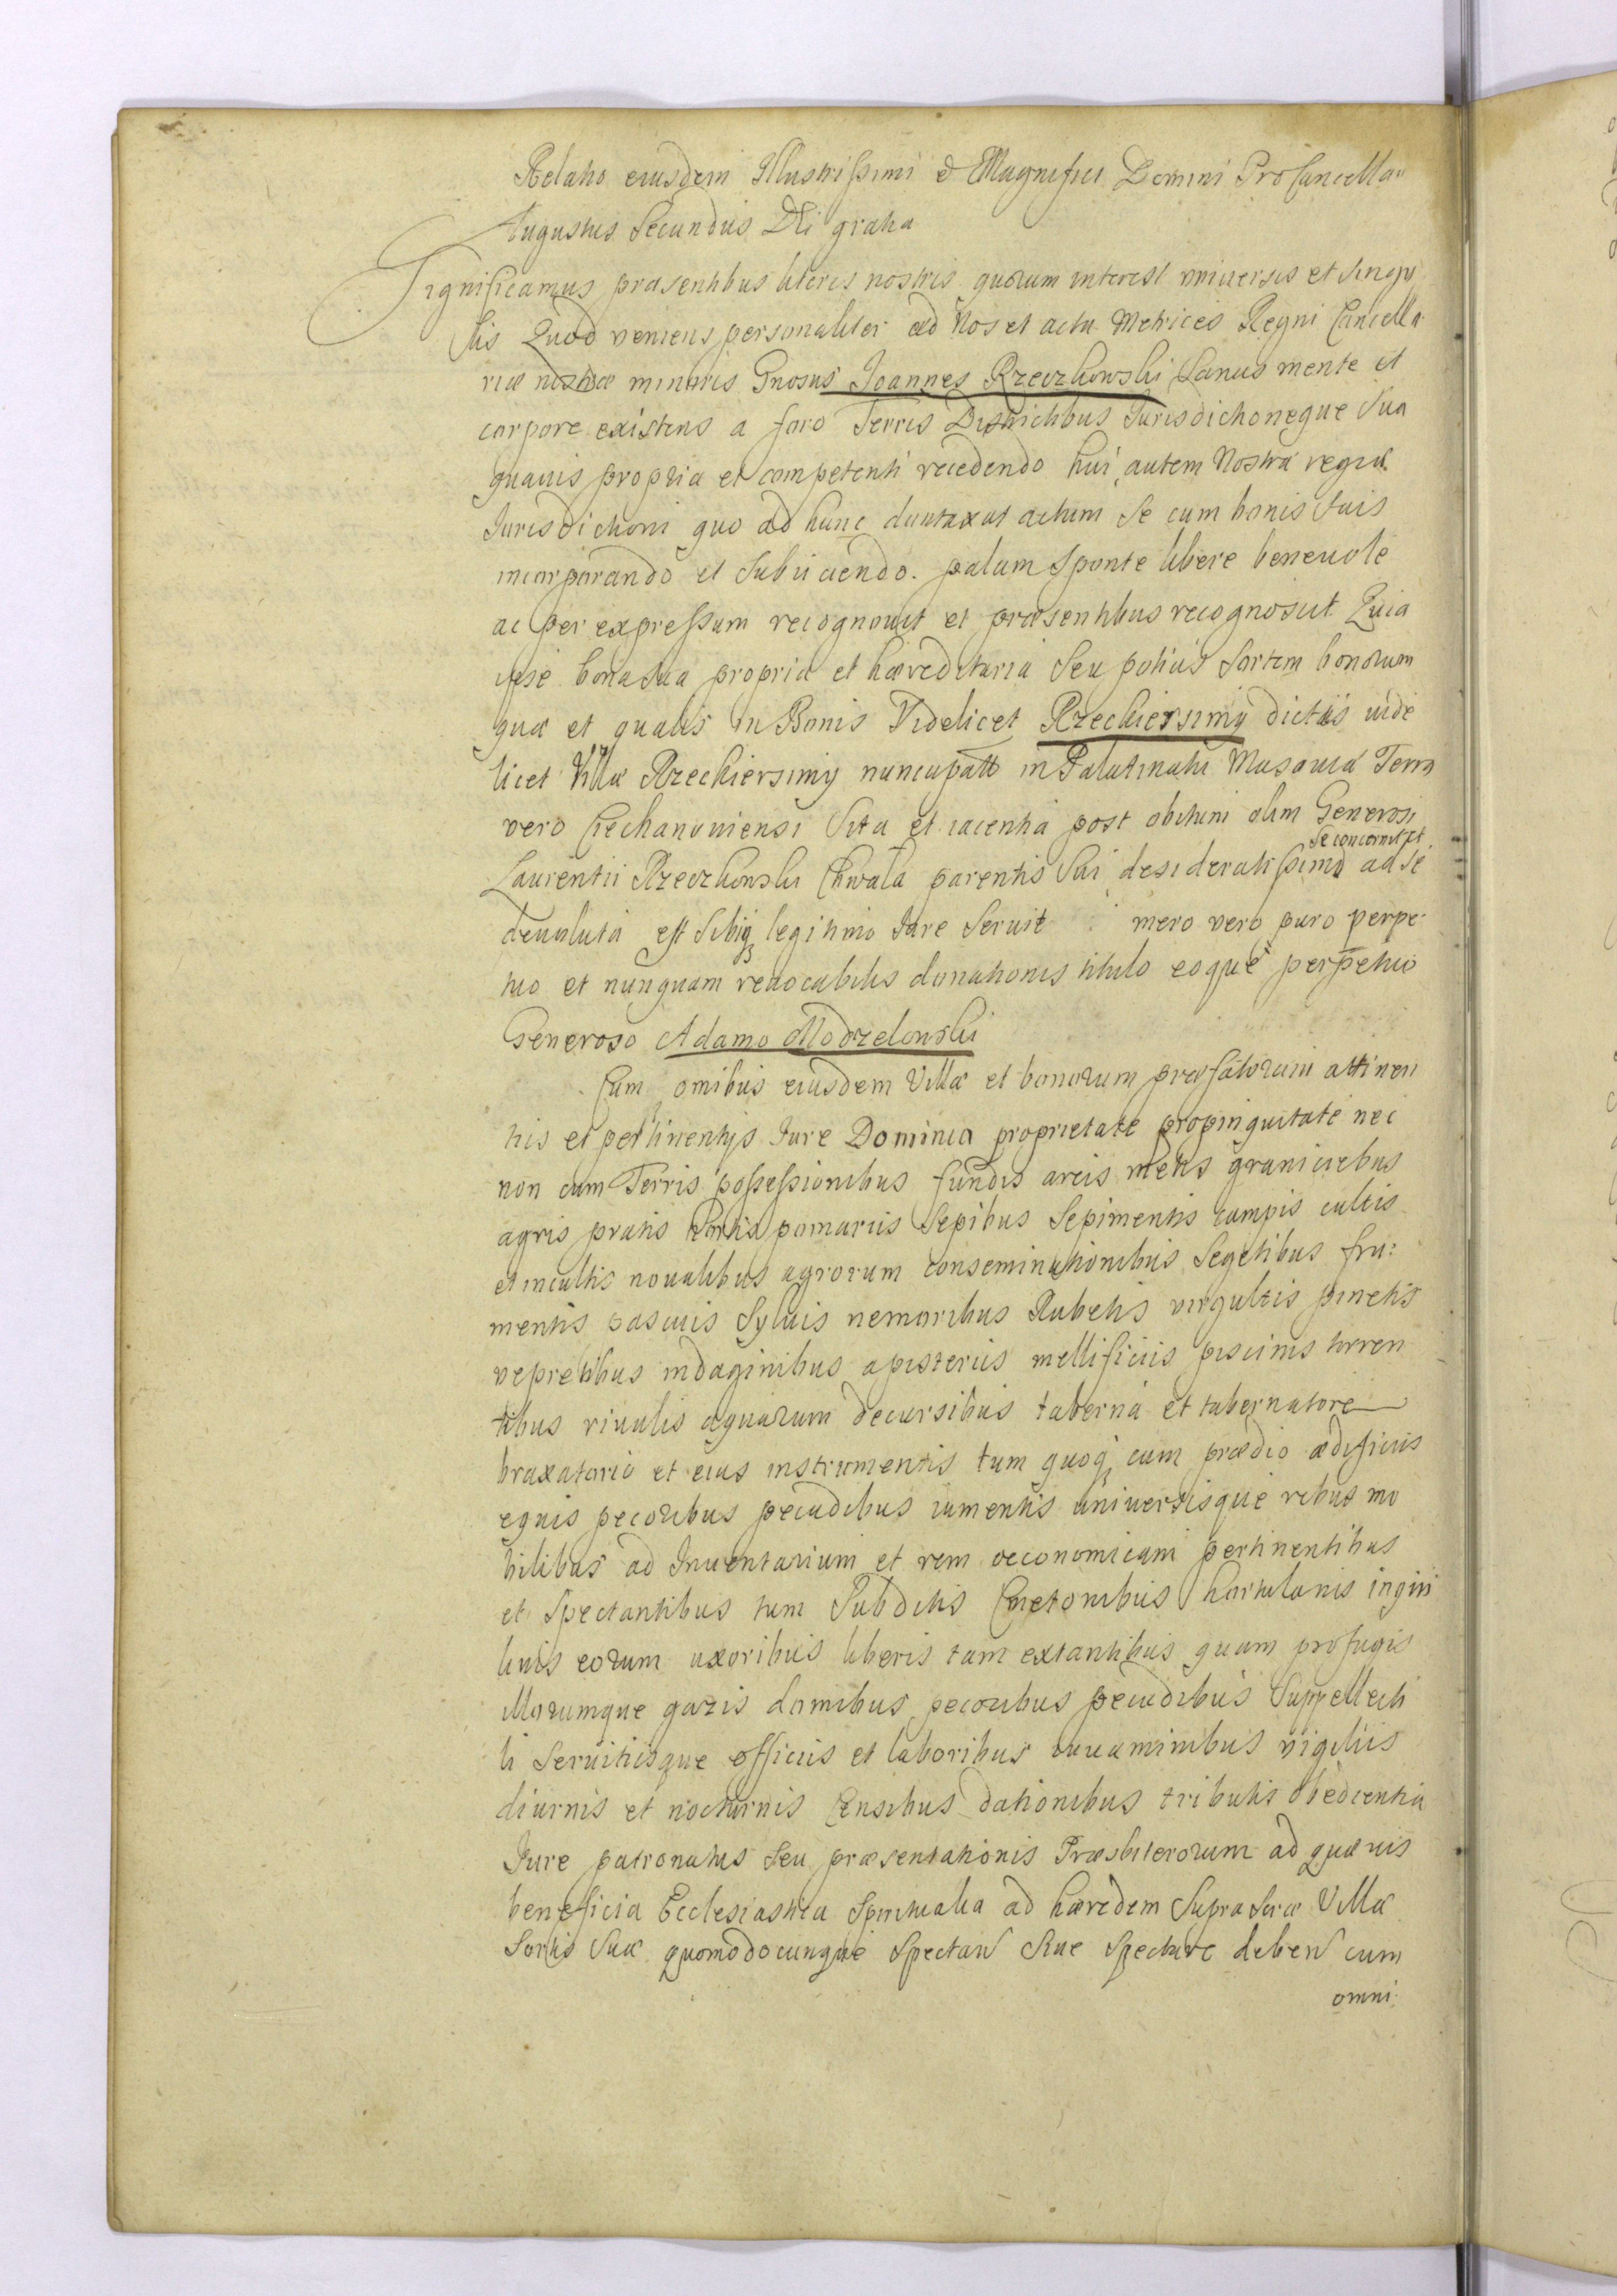 Relatio eiusdem Illustrissimi et Magnifici Domini ProCancella
Augustus Secundus Dei gratia
Significamus præsentibus literis nostris quorum interest vniuersis et singu
lis Quod veniens personaliter ad Nos et acta Metrices Regni Cancella
riæ nostræ minoris Gnosus Joannes Rzeczkowski Sanus mente et
corpore existens a foro Terris Districtibus Jurisdictioneque Sua
quauis propria et competenti recedendo huic autem Nostræ regiæ
Jurisdictioni quo ad hunc duntaxat actum Se cum bonis Suis
incorporando et Subiiciendo. palam Sponte libere beneuole
ac per expressum recognouit et præsentibus recognoscit Quia
ipse bona Sua propria et hæreditaria Seu potius Sortem bonorum
quæ et qualis in Bonis Videlicet Rzeckiersimy dictis uide
licet Villa Rzeckiersimy nuncupatt in Palatinatu Masouiæ Terra
vero Ciechanouiensi Sita et iacentia post obitum olim Generosi
Se concernit et
Laurentii Rzeczkowski Chwała parentis Sui desideratissimo ad Se
deuoluta est Sibiq legitimo Jure Seruit mero vero puro perpe
tuo et nunquam reuocabilis donationis titulo eoque perpetuo
Generoso Adamo Modzelowski
Cum omibus eiusdem Villæ et bonorum præfatorum attinen
tiis et pertinentijs Jure Dominia proprietate propinquitate nec
non cum Terris possessionibus fundis areis metis graniciebus
agris pratis hortis pomariis Sepibus Sepimentis campis cultis
et incultis noualibus agrorum conseminationibus Segetibus fru:
mentis pascuis Syluis nemoribus Rubetis virgultis pinetis
vepretibus indaginibus apisteriis mellificiis piscinis torren
tibus riuulis aquarum decursibus taberna et tabernatore
braxatorio et eius instrumentis tum quoq cum prædio ædificiis
equis pecoribus pecudibus iumentis uniuersisque rebus mo
bilibus ad Inuentarium et rem oeconomicam pertinentibus
et Spectantibus tum Subditis Cmetonibus hortulanis inqui
linis eorum uxoribus liberis tam extantibus quam profugis
illorumque gazis domibus pecoribus pecudibus Suppellecti
li Seruitiisque officiis et laboribus iuuaminibus vigiliis
diurnis et nocturnis Censibus dationibus tributis obedientia
Jure patronatus Seu præsentationis Præsbiterorum ad quæuis
beneficia Ecclesiastica Spiritualia ad hæredem Supra Scræ Villæ
Sortis Suæ quomodocunque Spectan Siue Spectare deben cum
omni